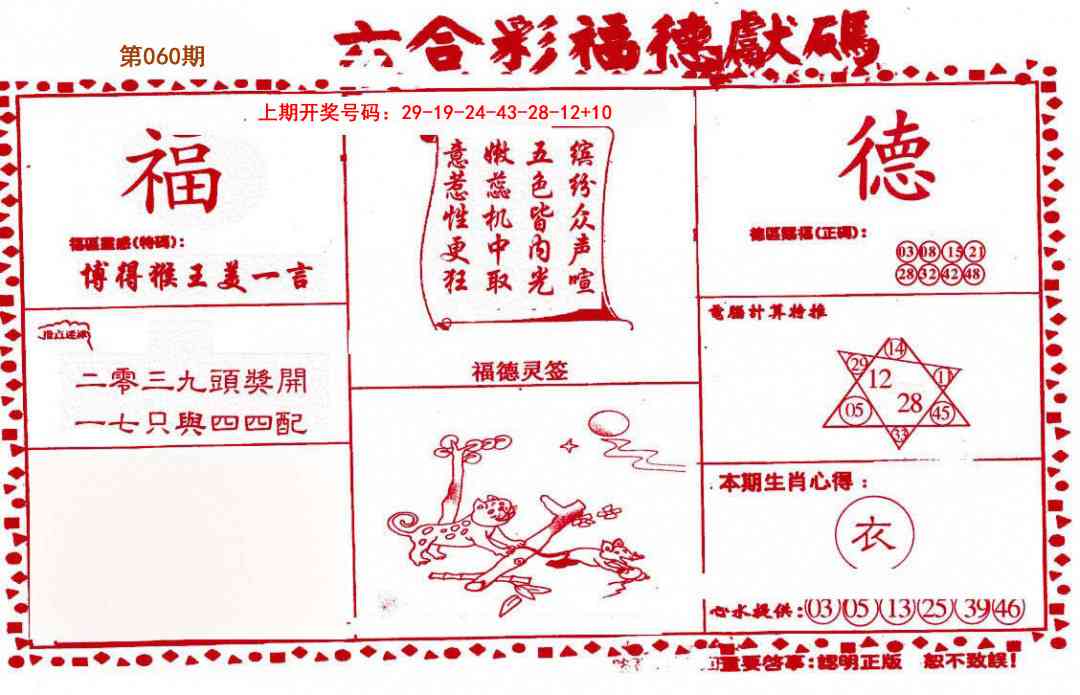 六合彩福德獻碼
第060期
上期开奖号码：29-19-24-43-28-12+10
福
福區靈感(特碼)：
博得猴王美一言
二零三九頭獎開
一七只與四四配
缤纷众声喧
五色皆内光
嫩蕊机中取
意惹性更狂
福德灵签
德
德區賜福(正碼)：
03 08 15 21
28 32 42 48
電腦計算特推
14
29
12
11
05
28
45
33
本期生肖心得：
衣
心水提供：03 05 13 25 39 46
重要啓事：認明正版 恕不致誤！